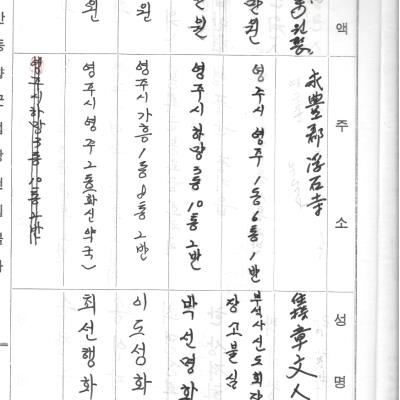 액
주소
성명
永豊郡 浮石寺
章文人
만원
영주시 영주1동 6통 1반
부석사신도회장
장고불심
원
영주시 하망3동 10통 2반
박선명화
원
영주시 가흥1동 8통 2반
이도성화
원
영주시 영주2동(화신약국)
최선행화
영주시 하망3동 10통 2반